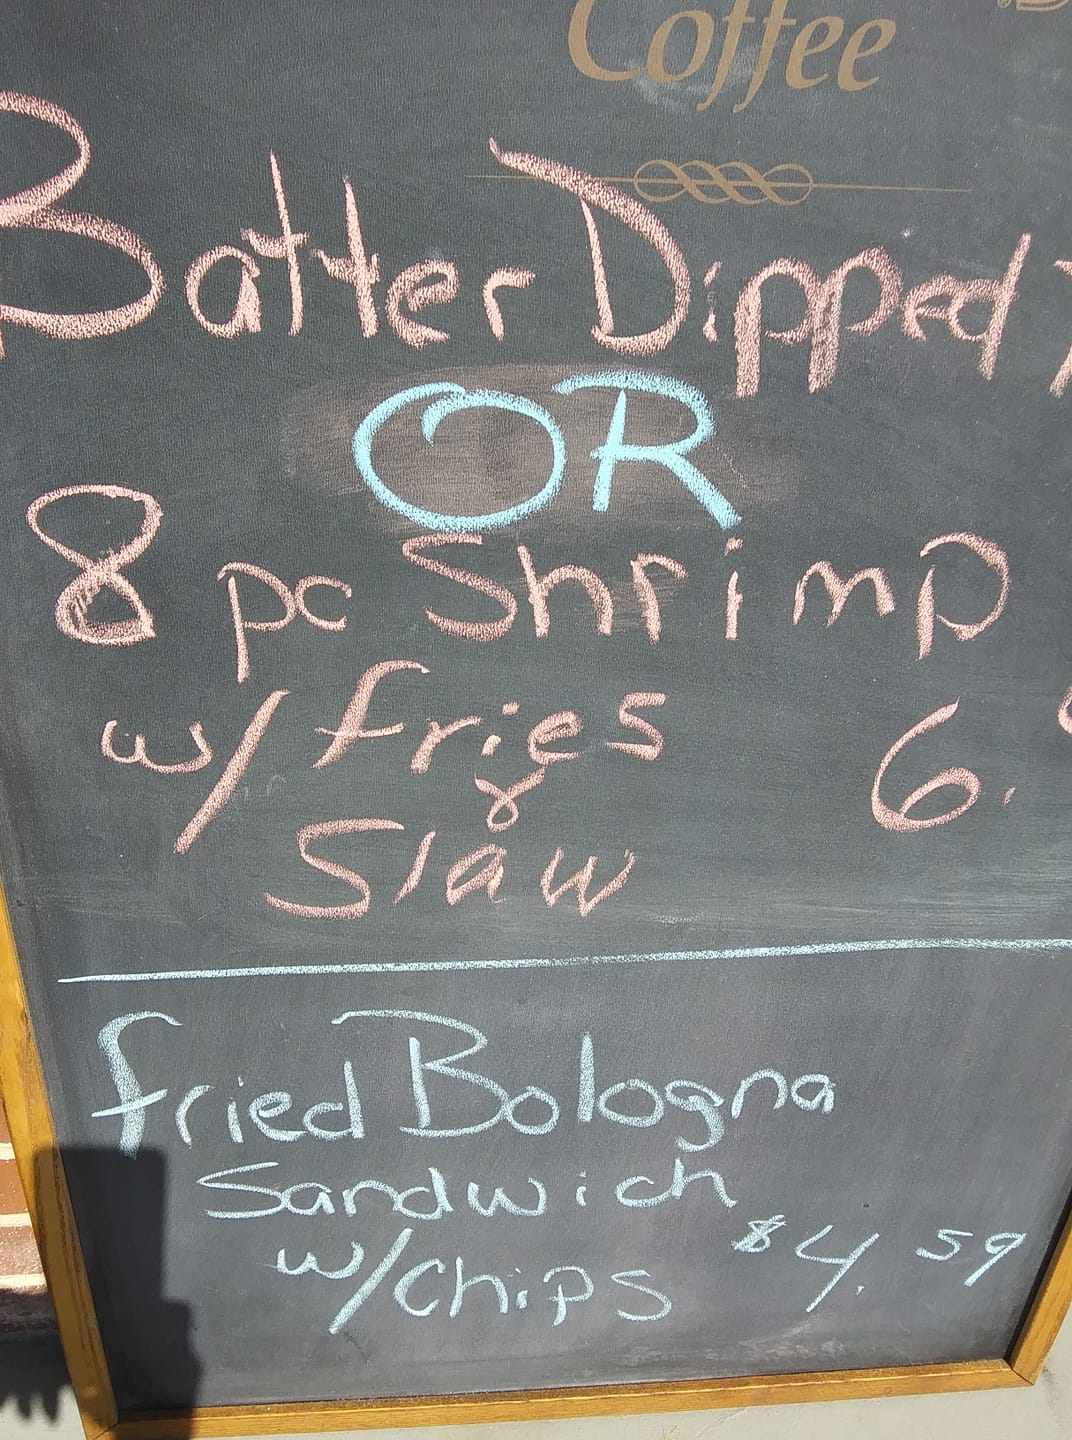 Coffee
Batter Dipped
OR
8 pc Shrimp
w/ fries 6.
&
Slaw
Fried Bologna
Sandwich
w/Chips $4.59